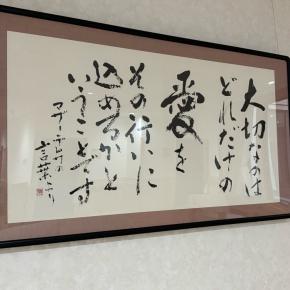 大切なのは
どれだけの
愛を
その行いに
込めるかと
いうことです
マザーテレサの
言葉より